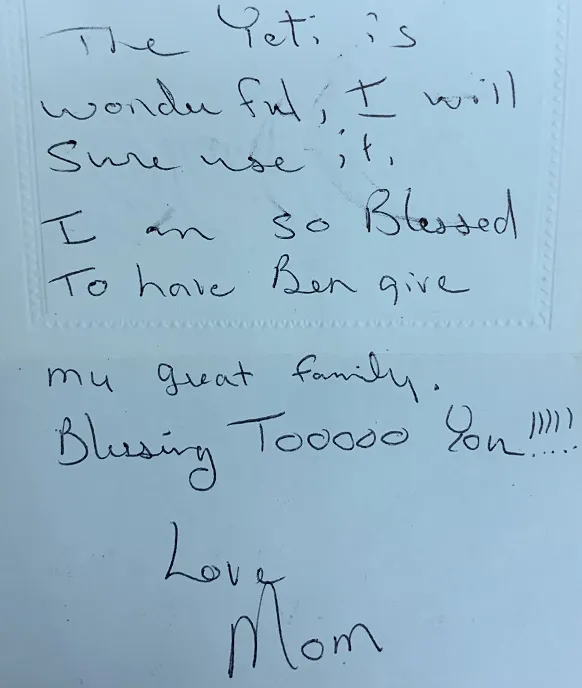 The Yeti is
wonderful, I will
Sure use it.
I am so Blessed
To have Ben give
my great family.
Blessing Tooooo You!!!!!
Love
Mom